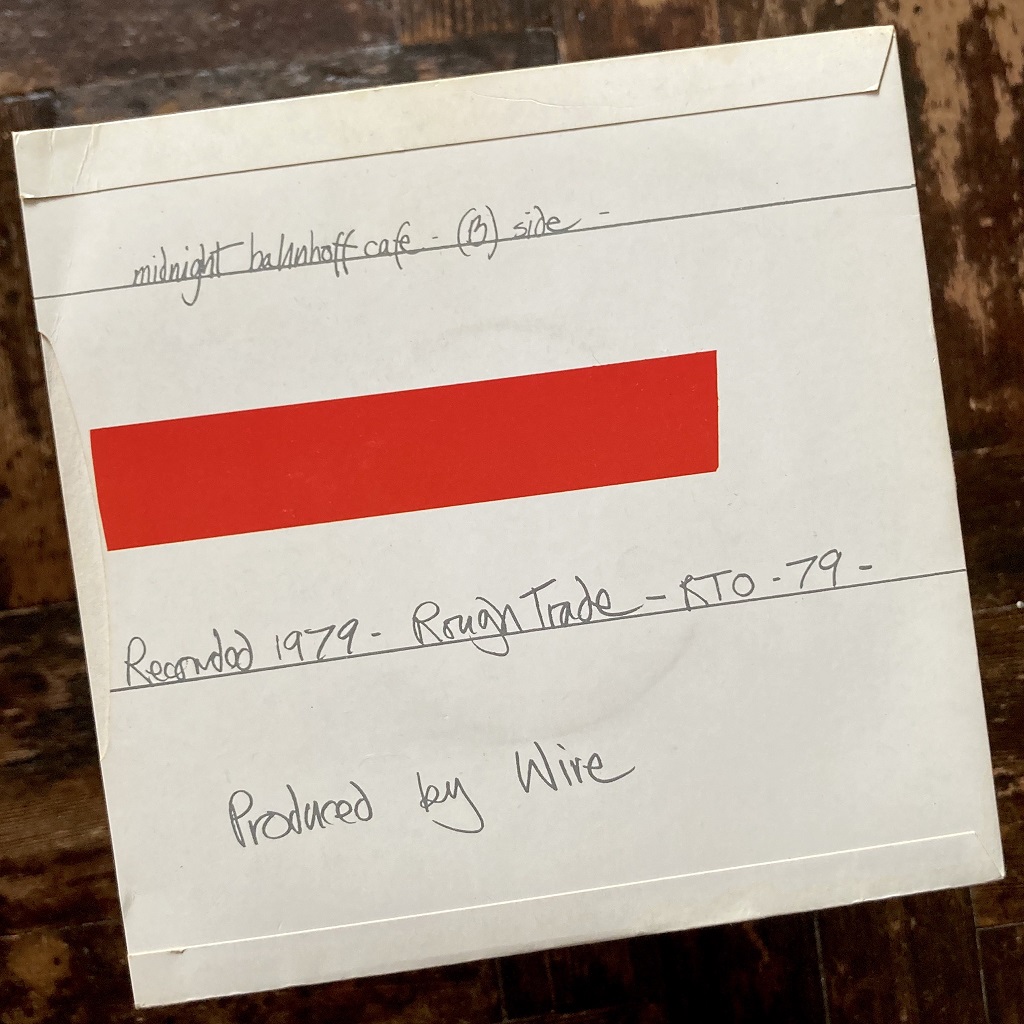 midnight bahnhoff cafe - (B) side -
Recorded 1979 - Rough Trade - RTO - 79 -
Produced by Wire